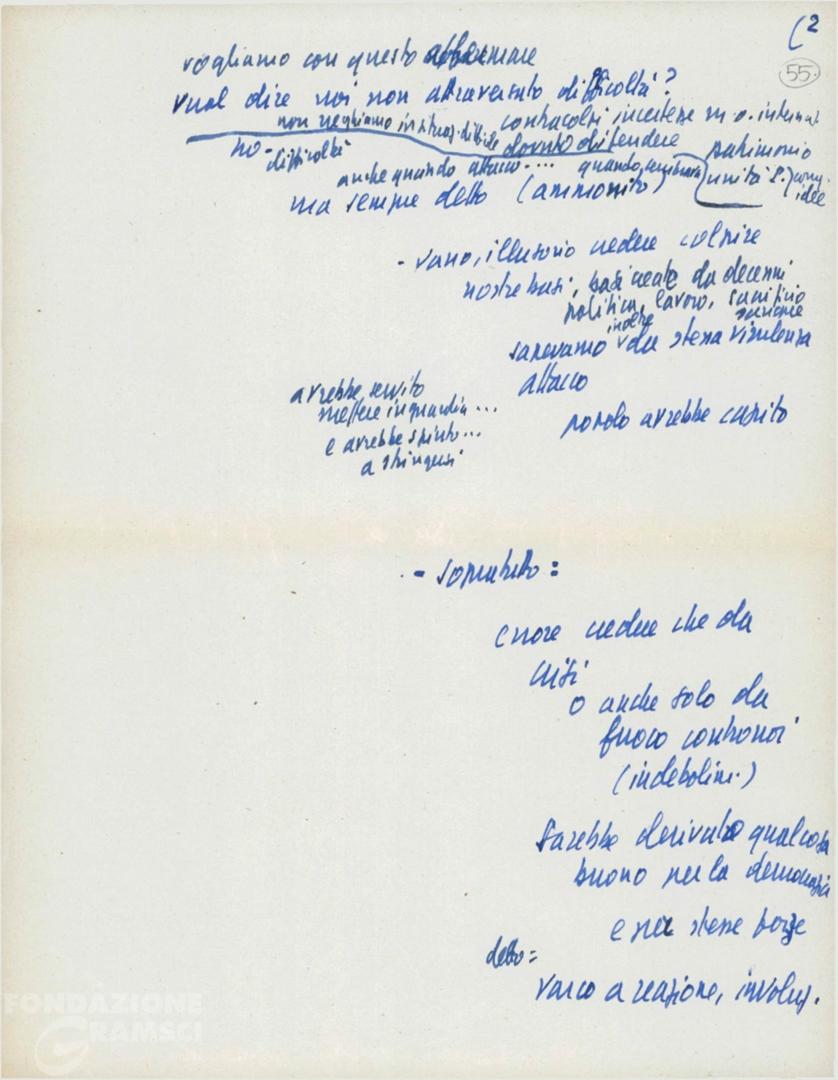 (2
55.
vogliamo con questo affermare
vuol dire noi non attraversato difficoltà?
non neghiamo in situaz. difficile contraccolpi incertezze m.o. internaz
no - difficoltà dovuto difendere patrimonio
anche quando attacco .... quando, sembrava unità P. idee
ma sempre detto (ammonito)
- vano, illusorio credere colpire
nostre basi, basi create da decenni
politica, lavoro, sacrificio
inoltre
sapevamo v da stessa virulenza
attacco
avrebbe servito
mettere in guardia ...
popolo avrebbe capito
e avrebbe spinto ...
a stringersi
- soprattutto =
errore credere che da
crisi
o anche solo da
fuoco contro noi
(indebolim.)
sarebbe derivato qualcosa
buono per la democrazia
e per stesse forze
detto =
varco a reazione, involuz.
FONDAZIONE
GRAMSCI